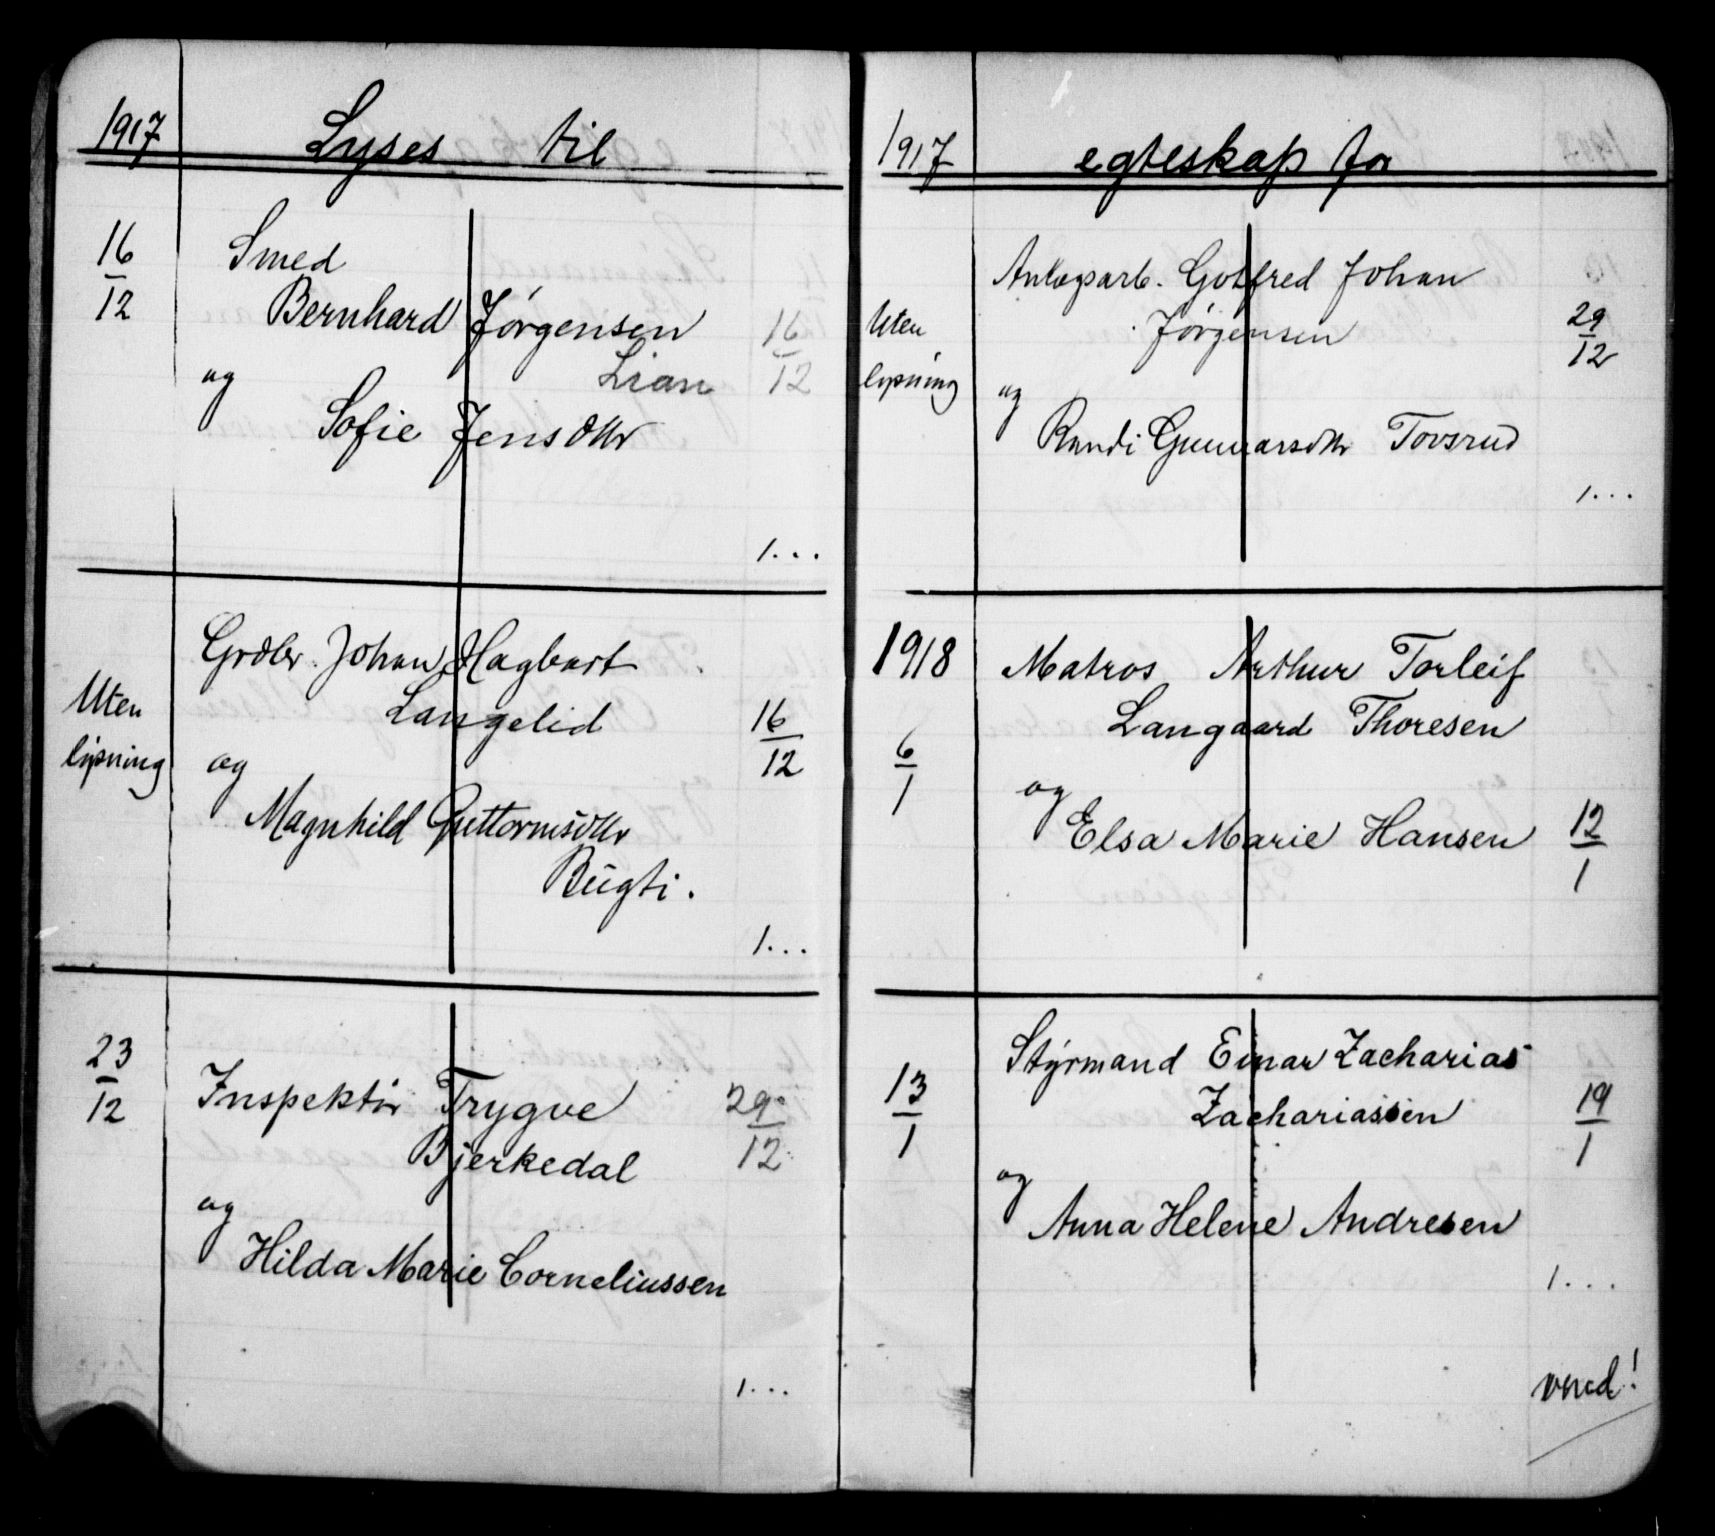 1917 Lyses til
16/12
Smed
Bernhard Jørgensen
Lian
16/12
og
Sofie Jensdttr
1...
Uten
lysning
Grdbr. Johan Hagbart
Langelid
16/12
og
Magnhild Guttormsdttr
Bugti.
1...
23/12
Inspektør Trygve
Bjerkedal
29/12
og
Hilda Marie Corneliussen
1...
1917 egteskap for
Uten
lysning
Anlægsarb. Gotfred Johan
Jørgensen
29/12
og
Randi Gunnarsdttr Tovsrud
1...
1918
6/1
Matros Arthur Torleif
Langaard Thoresen
og
Elsa Marie Hansen
12/1
13/1
Styrmand Einar Zacharias
Zachariassen
19/1
og
Anna Helene Andresen
1...
vend!